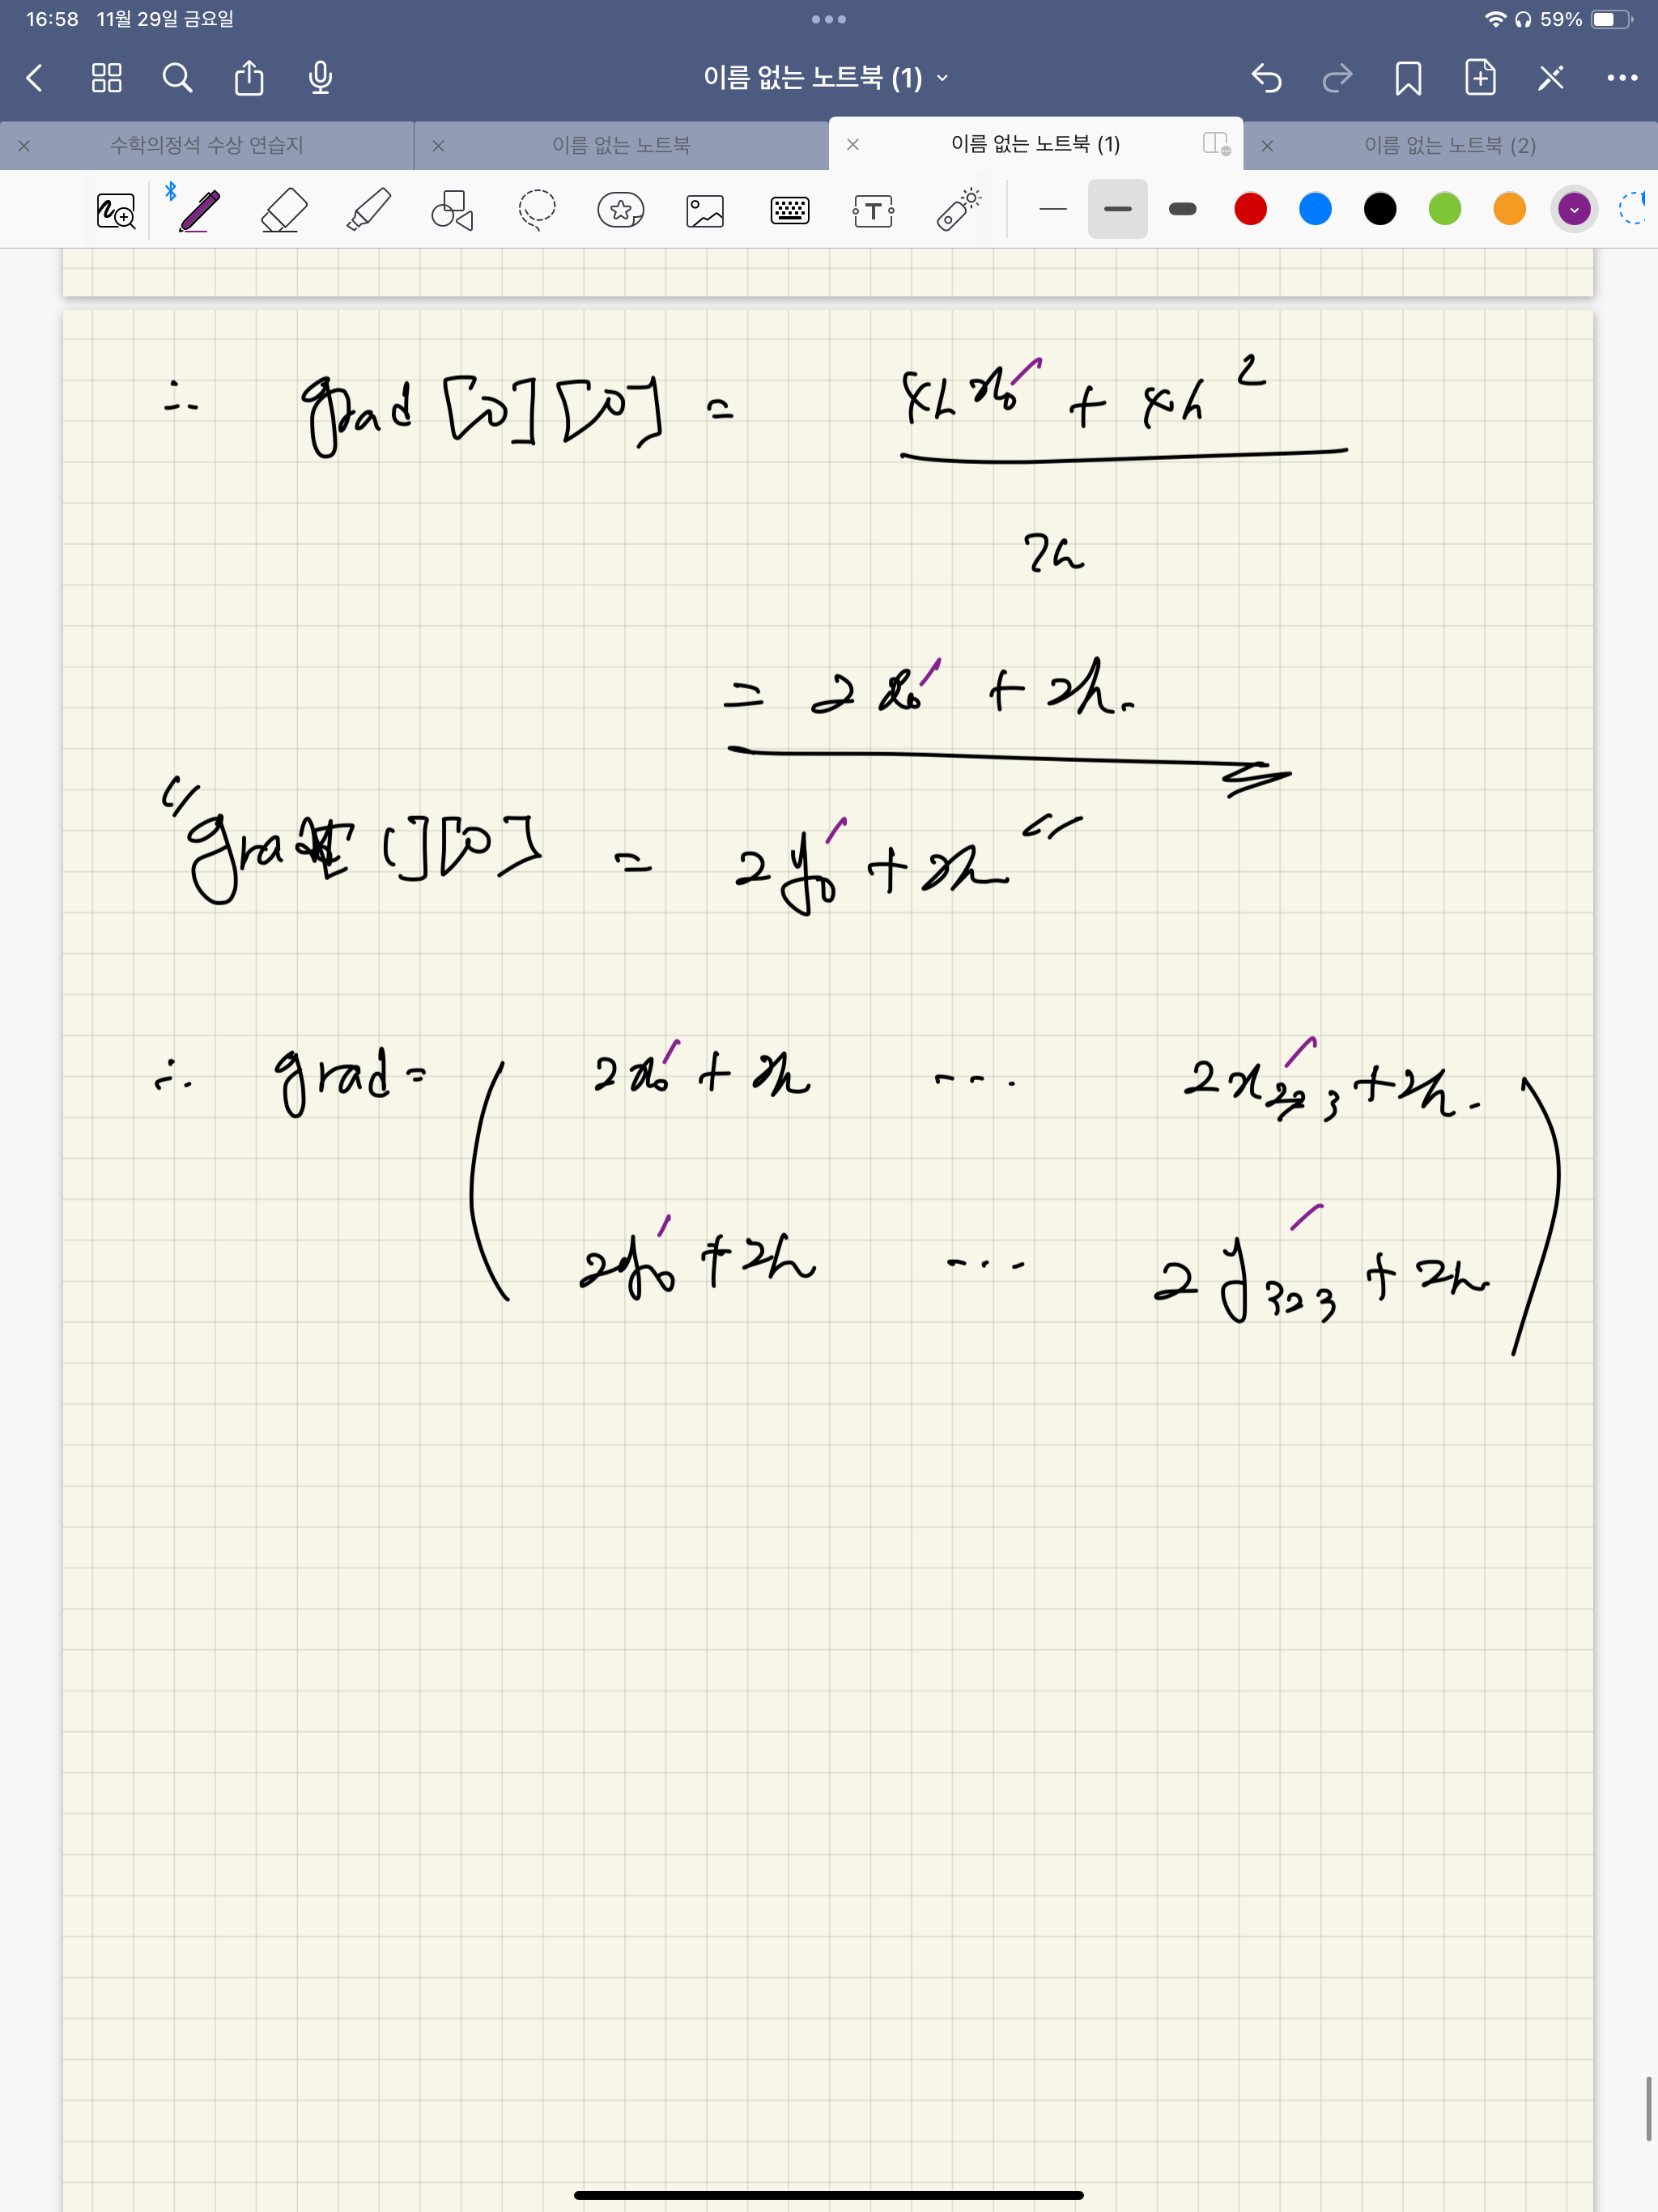 16:58 11월 29일 금요일 59%
이름 없는 노트북 (1)
수학의정석 수상 연습지 이름 없는 노트북 이름 없는 노트북 (1) 이름 없는 노트북 (2)
∴ grad [0][0] = 4hx₀′ + 4h²
2h
= 2x₀′ + 2h.
"grad [1][0] = 2y₀′ + 2h"
∴ grad = ( 2x₀′ + 2h --- 2x₃₂₃′ + 2h.
2y₀′ + 2h --- 2y₃₂₃′ + 2h )